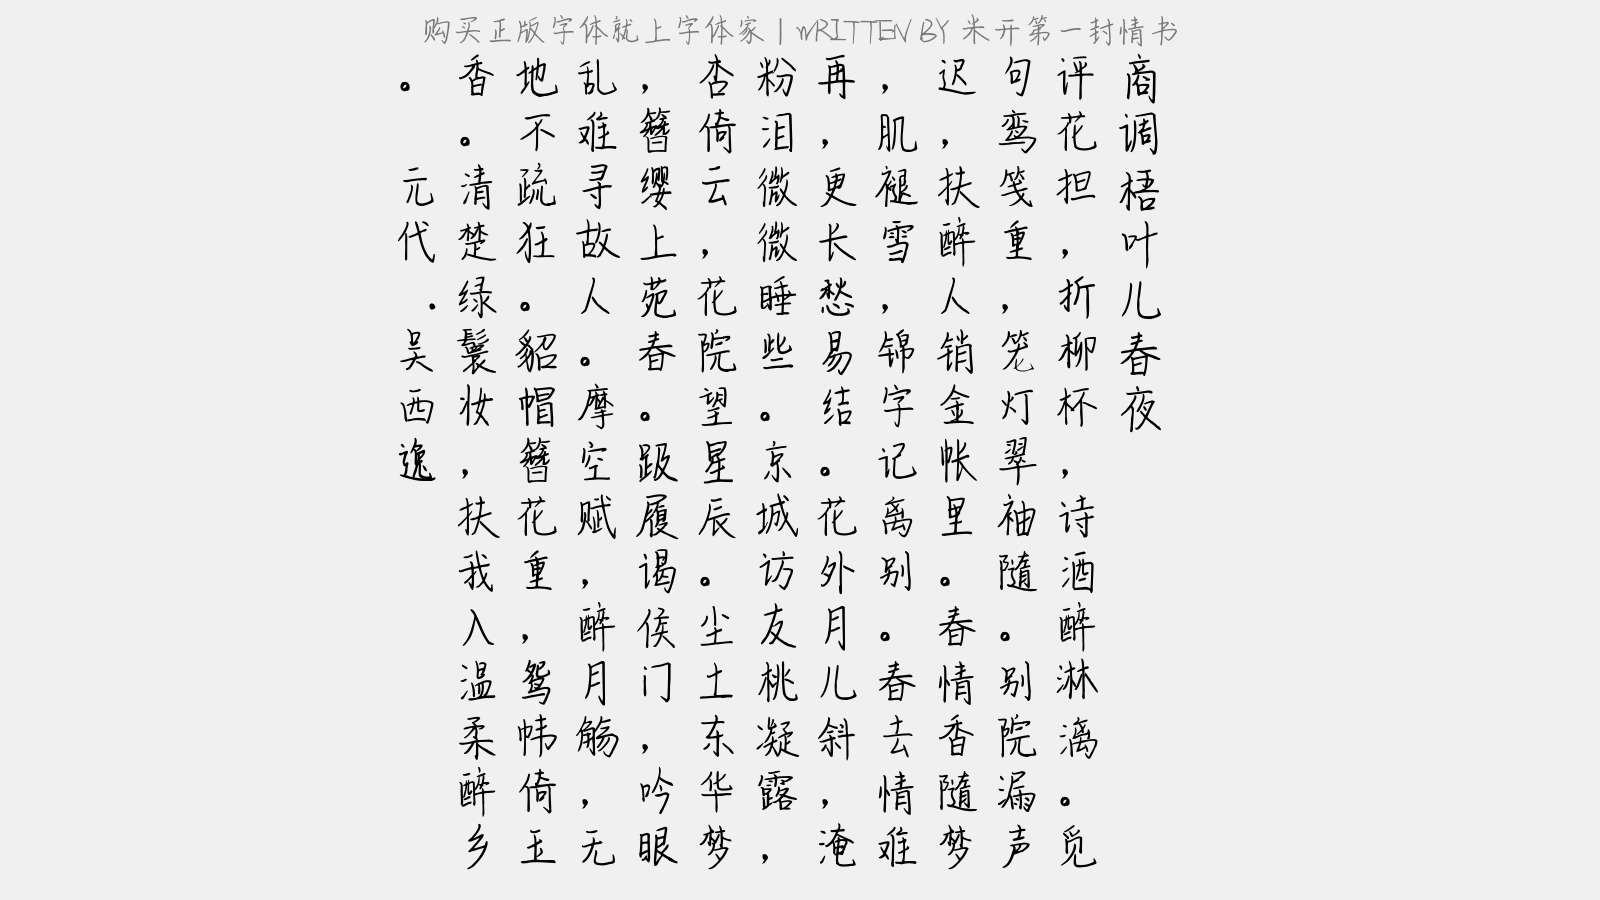 购买正版字体就上字体家 | WRITTEN BY 米开第一封情书
商调梧叶儿春夜
评花担，折柳杯，诗酒醉淋漓。觅
句鸾笺重，笼灯翠袖随。别院漏声
迟，扶醉人销金帐里。春情香随梦
，肌褪雪，锦字记离别。春去情难
再，更长愁易结。花外月儿斜，淹
粉泪微微睡些。京城访友桃凝露，
杏倚云，花院望星辰。尘土东华梦
，簪缨上苑春。趿履谒侯门，吟眼
乱难寻故人。摩空赋，醉月觞，无
地不疏狂。貂帽簪花重，鸳帏倚玉
香。清楚绿鬟妆，扶我入温柔醉乡
。元代.吴西逸